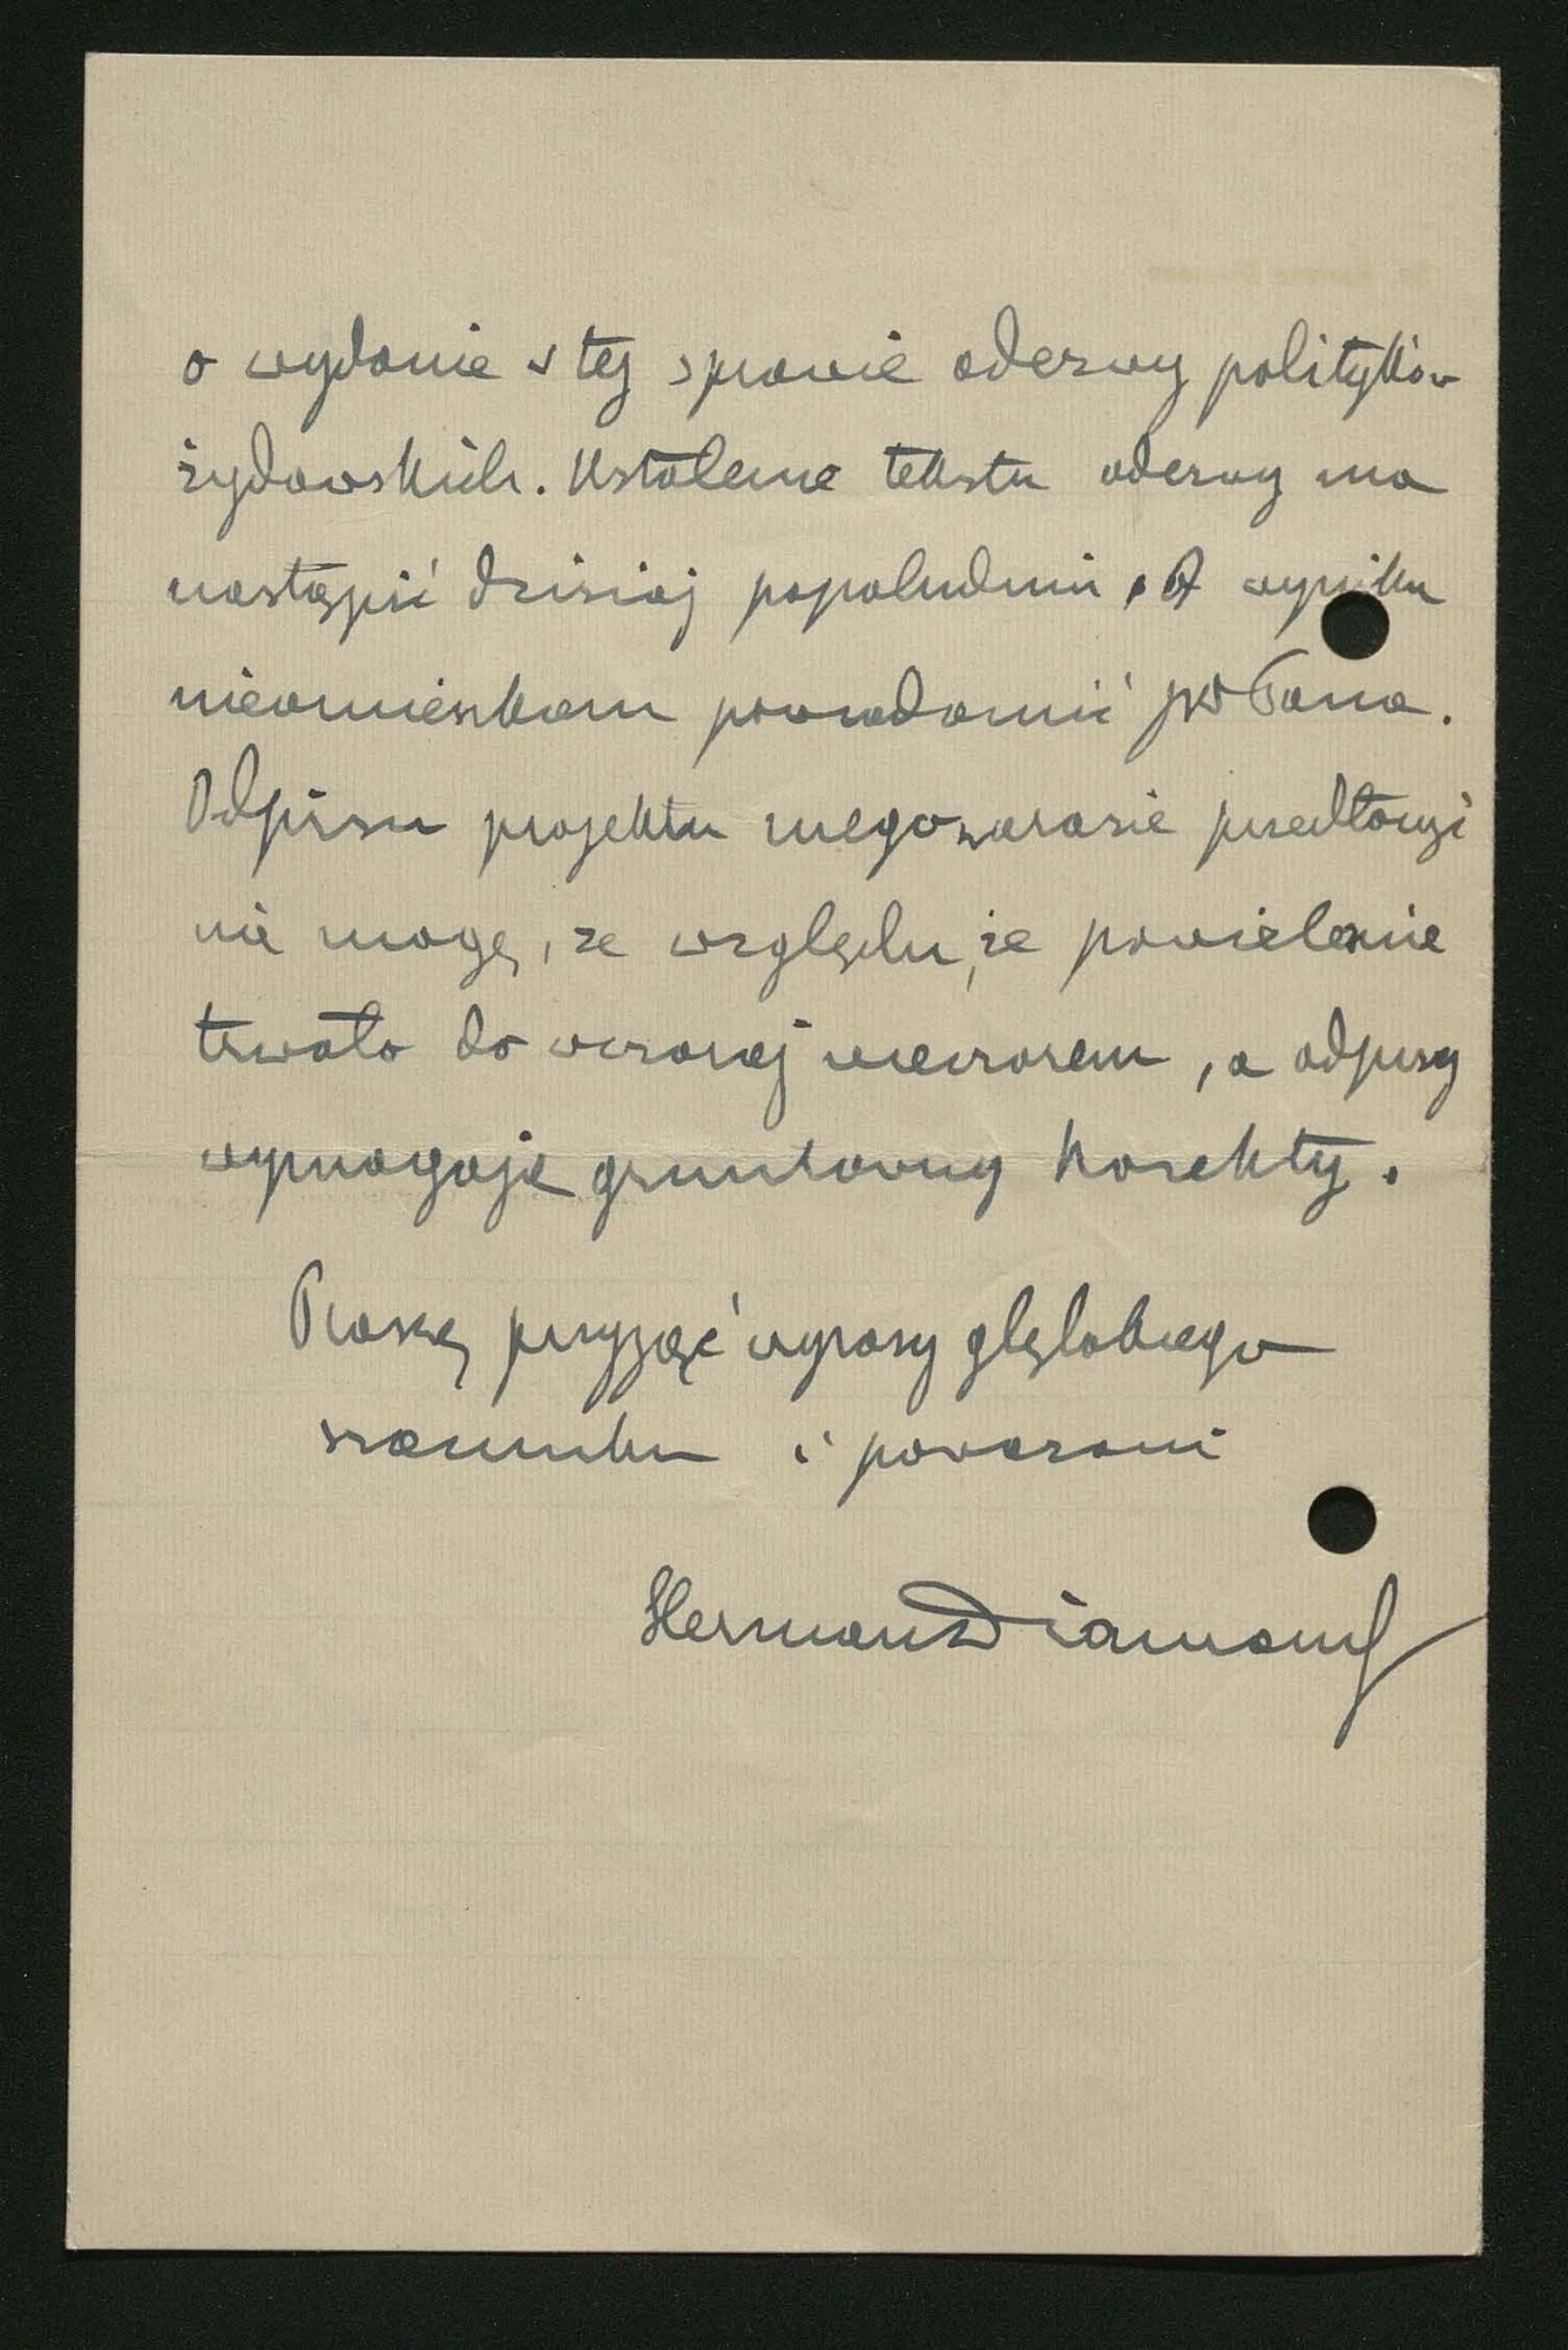 o wydanie w tej sprawie odezwy polityków
żydowskich. Ustalenie tekstu odezwy ma
nastąpić dzisiaj popołudniu. O wyniku
nieomieszkam powiadomić JWPana.
Odpisu projektu mego narazie przedłożyć
nie mogę, ze względu, że powielenie
trwało do wczoraj wieczorem, a odpisy
wymagają gruntowny korekty.
Proszę przyjąć wyrazy głębokiego
szacunku i poważani
Herman Diamand